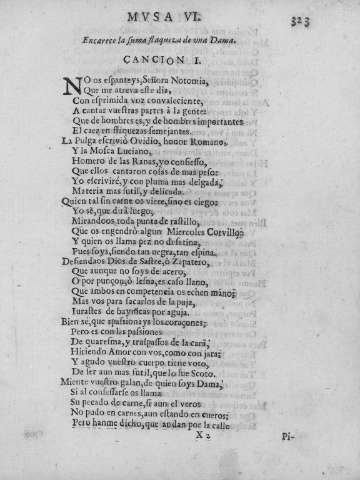 MVSA VI.
323
Encarece la suma flaqueza de vna Dama.
CANCION I.
NO os espanteys, Señora Notomia,
Que me atreva este dia,
Con esprimida voz convaleciente,
A cantar vuestras partes à la gente:
Que de hombres es, y de hombres importantes
El caer en flaquezas semejantes.
La Pulga escriviò Ovidio, honor Romano,
Y la Mosca Luciano,
Homero de las Ranas, yo confiesso,
Que ellos cantaron cosas de mas peso:
Yo escrivirè, y con pluma mas delgada,
Materia mas sutil, y delicada.
Quien tal sin carne os viere, sino es ciego:
Yo sè, que dirà luego,
Mirandoos toda punta de rastillo,
Que os engendrò algun Miercoles Corvillo:
Y quien os llama pez no desatina,
Pues soys, siendo tan negra, tan espina.
Defiendaos Dios de Sastre, ò Zapatero,
Que aunque no soys de acero,
O por punçon, ò lesna, es caso llano,
Que ambos en competencia os echen mano;
Mas vos para sacarlos de la puja,
Iurastes de baynicas por aguja.
Bien sè, que apassionays los coraçones;
Pero es con las passiones
De quaresma, y traspassos de la cara,
Hiriendo Amor con vos, como con jara;
Y agudo vuestro cuerpo tiene voto,
De ser aun mas sutil, que lo fue Scoto.
Miente vuestro galan, de quien soys Dama,
Si al confessarse os llama
Su pecado de carne, si aun el veros
No pudo en carnes, aun estando en cueros;
Pero hanme dicho, que andan por la calle
X 2
Pi-